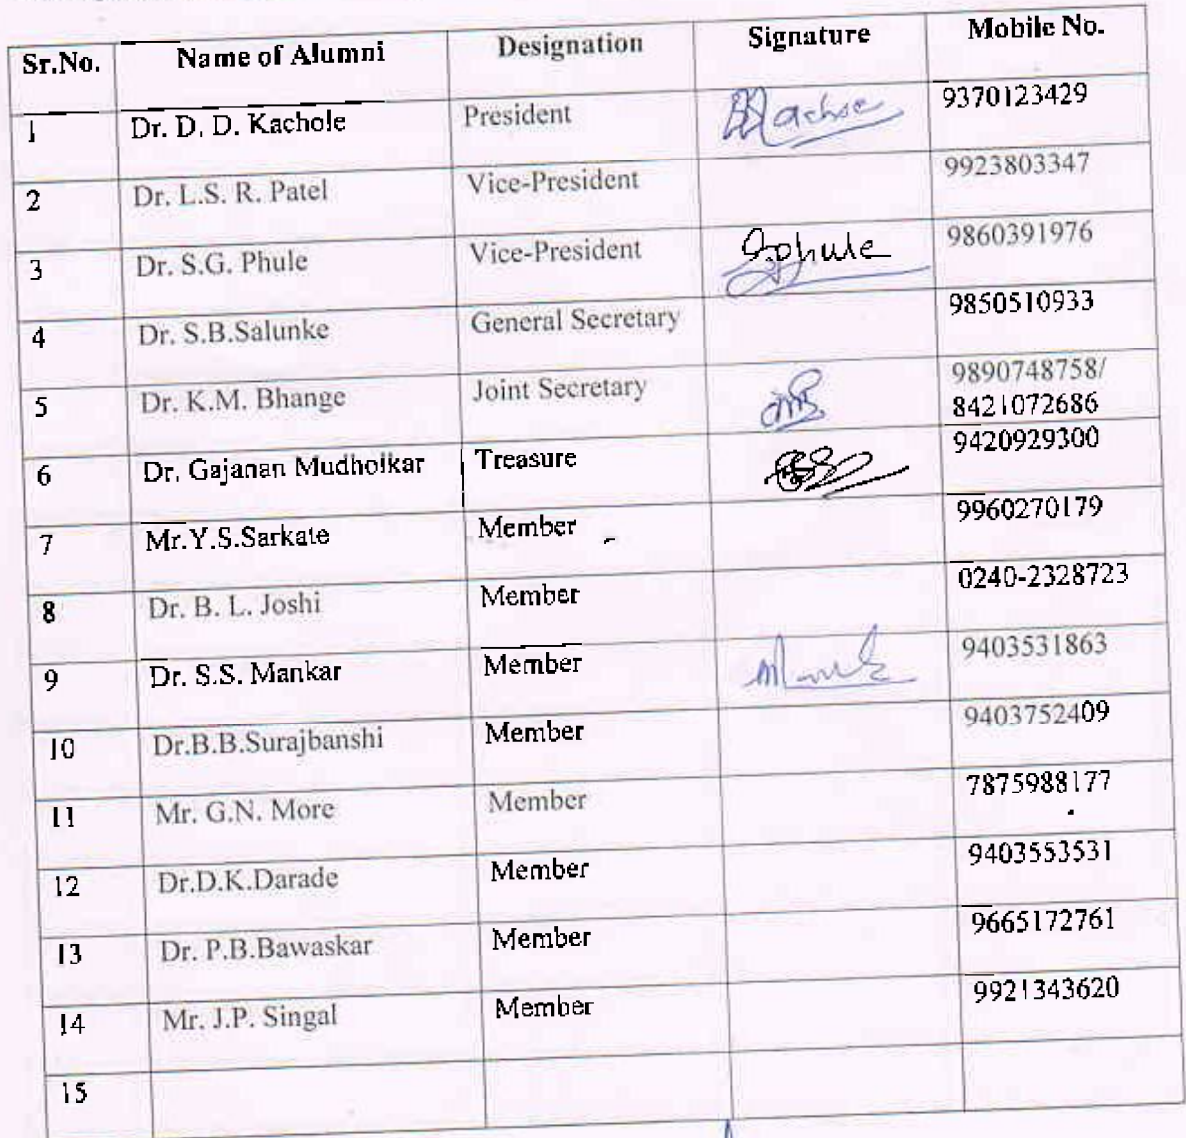 Sr.No. Name of Alumni Designation Signature Mobile No.
1 Dr. D. D. Kachole President 9370123429
2 Dr. L.S. R. Patel Vice-President 9923803347
3 Dr. S.G. Phule Vice-President Sphule 9860391976
4 Dr. S.B.Salunke General Secretary 9850510933
5 Dr. K.M. Bhange Joint Secretary 9890748758/
8421072686
6 Dr. Gajanan Mudholkar Treasure 9420929300
7 Mr.Y.S.Sarkate Member 9960270179
8 Dr. B. L. Joshi Member 0240-2328723
9 Dr. S.S. Mankar Member 9403531863
10 Dr.B.B.Surajbanshi Member 9403752409
11 Mr. G.N. More Member 7875988177
12 Dr.D.K.Darade Member 9403553531
13 Dr. P.B.Bawaskar Member 9665172761
14 Mr. J.P. Singal Member 9921343620
15